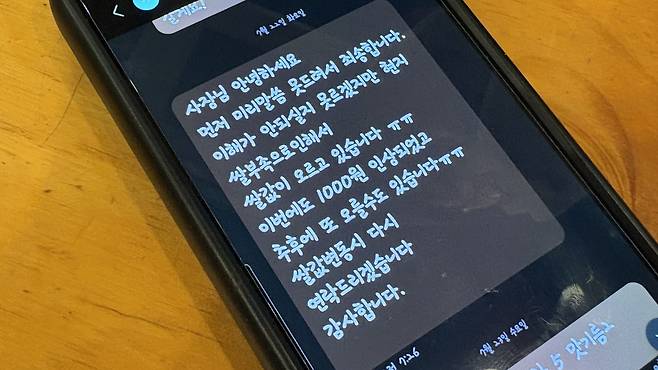 7월 22일 화요일
사장님 안녕하세요
먼저 미리말씀 못드려서 죄송합니다.
이해가 안되실지 모르겠지만 현지
쌀부족으로인해서
쌀값이 오르고 있습니다 ㅠㅠ
이번에도 1000원 인상되었고
추후에 또 오를수도 있습니다ㅠㅠ
쌀값변동시 다시
연락드리겠습니다
감사합니다.
7:26
7월 23일 수요일
5 맛기름2